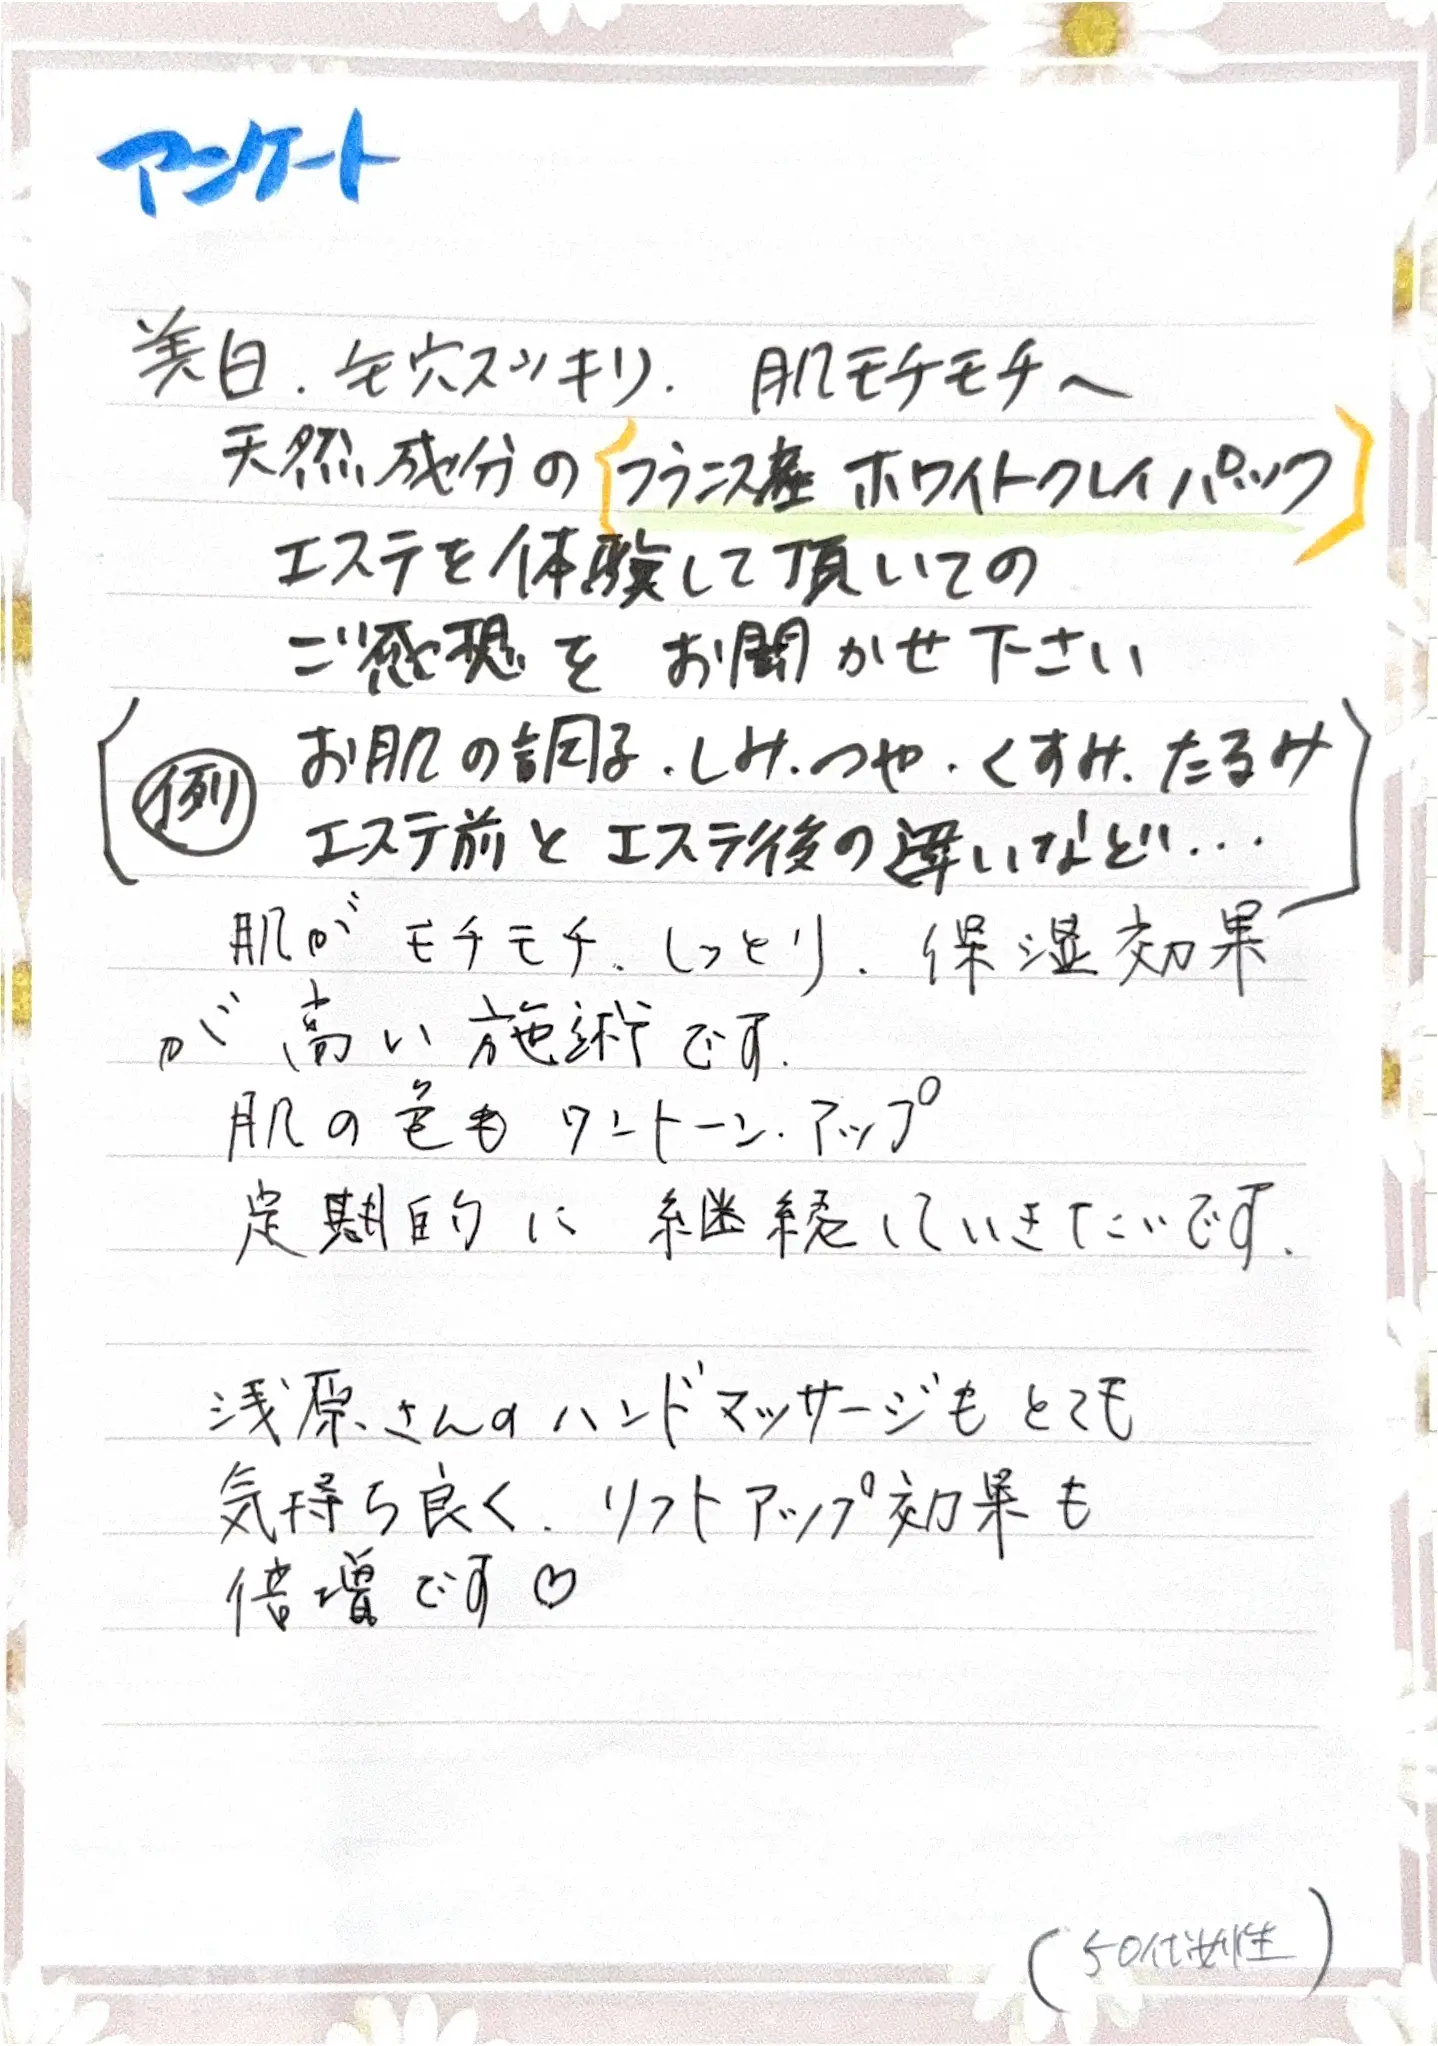 アンケート
美白.毛穴スッキリ. 肌モチモチへ
天然成分の[フランス産 ホワイトクレイパック]
エステを体験して頂いての
ご感想を お聞かせ下さい
(例) お肌の調子.しみ.つや.くすみ.たるみ
エステ前とエステ後の違いなど...
肌が モチモチ、しっとり. 保湿効果
が 高い 施術です.
肌の色も ワントーン.アップ
定期的に 継続していきたいです.
浅原さんのハンドマッサージもとても
気持ち良く. リフトアップ効果も
倍増です♡
(50代女性)